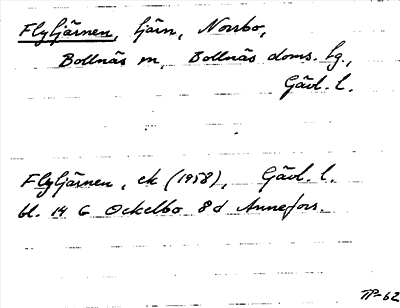 Flytjärnen, tjärn, Norrbo,
Bollnäs sn, Bollnäs doms. lg.,
Gävl. l.
Flytjärnen, ek (1958), Gävl. l.
bl. 14 G Ockelbo 8d Annefors.
TP-62